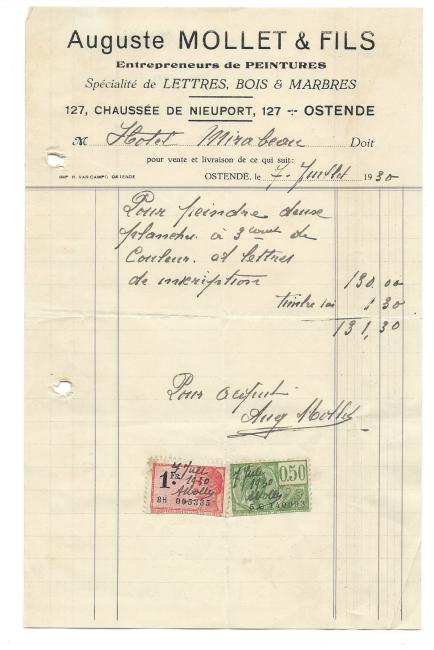 Auguste MOLLET & FILS
Entrepreneurs de PEINTURES
Spécialité de LETTRES, BOIS & MARBRES
127, CHAUSSÉE DE NIEUPORT, 127 -:- OSTENDE
M Hotel Mirabeau Doit
pour vente et livraison de ce qui suit:
IMP. H. VAN CAMP, OSTENDE
OSTENDE, le 7 Juillet 1930
Pour peindre deux
planches à 3 de
Couleur et lettres
de inscription 130.00
timbre 1 30
131,30
Pour acquit
Aug Mollet
1 FR 7 Juil 1930 AMollet
8H 005335
0.50 7 Juil 1930